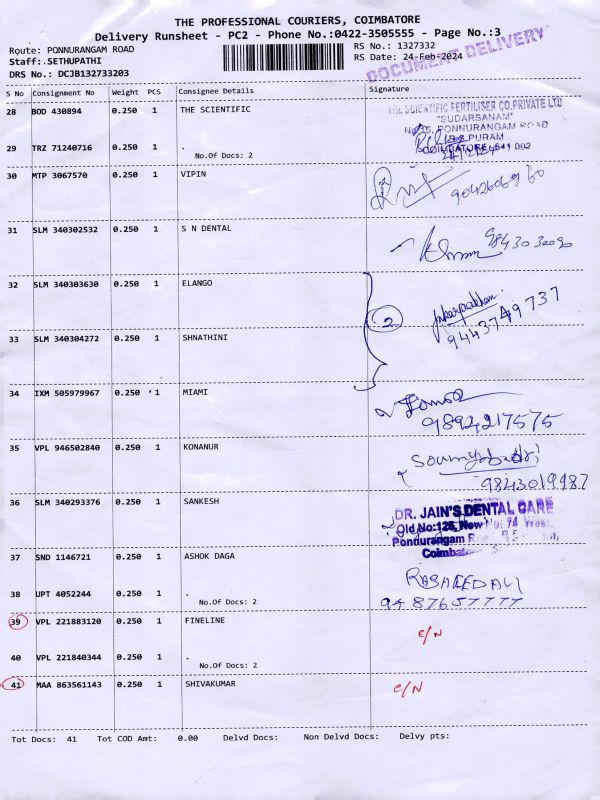 THE PROFESSIONAL COURIERS, COIMBATORE
Delivery Runsheet - PC2 - Phone No.:0422-3505555 - Page No.:3
Route: PONNURANGAM ROAD RS No.: 1327332
Staff:SETHUPATHI RS Date: 24-Feb-2024
DRS No.: DCJB132733203
DOCUMENT DELIVERY
S No Consignment No Weight PCS Consignee Details Signature
28 BOD 430894 0.250 1 THE SCIENTIFIC
THE SCIENTIFIC FERTILISER CO.PRIVATE LTD
"SUDARSANAM"
PONNURANGAM ROAD
PURAM
COIMBATORE - 641 002
29 TRZ 71240716 0.250 1 .
No.Of Docs: 2
30 MTP 3067570 0.250 1 VIPIN
31 SLM 340302532 0.250 1 S N DENTAL
32 SLM 340303630 0.250 1 ELANGO
2
9443749737
33 SLM 340304272 0.250 1 SHNATHINI
34 IXM 505979967 0.250 1 MIAMI
9894217575
35 VPL 946502840 0.250 1 KONANUR
9843019987
36 SLM 340293376 0.250 1 SANKESH
DR. JAIN'S DENTAL CARE
Old No:125, New No: 74 West
Ponnurangam
Coimbat
37 SND 1146721 0.250 1 ASHOK DAGA
RASHEED ALI
9487657777
38 UPT 4052244 0.250 1 .
No.Of Docs: 2
39 VPL 221883120 0.250 1 FINELINE
C/N
40 VPL 221840344 0.250 1 .
No.Of Docs: 2
41 MAA 863561143 0.250 1 SHIVAKUMAR C/N
Tot Docs: 41 Tot COD Amt: 0.00 Delvd Docs: Non Delvd Docs: Delvy pts: